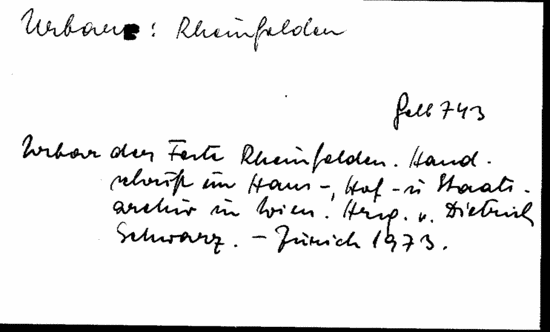 Urbare: Rheinfelden
Gelb 743
Urbar der Feste Rheinfelden. Hand-
schrift im Haus-, Hof- u Staats-
archiv in Wien. Hrsg. v. Dietrich
Schwarz. – Zürich 1973.